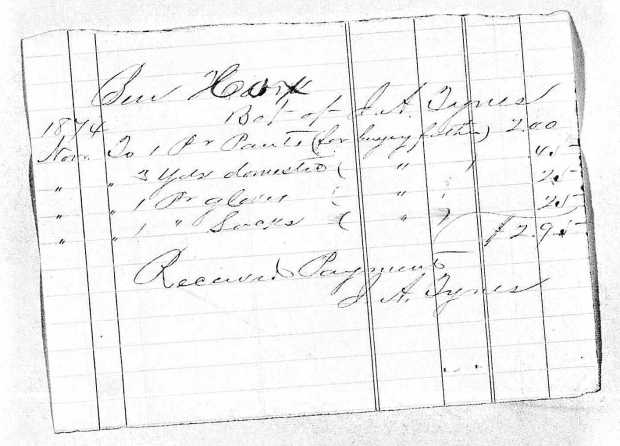 Ben Hark
Bot of J. A. Tynes
1874
Nov. To 1 Pr Pants (for burying father) 2.00
" " 3 Yds domestic ( " ) 45
" " 1 Pr gloves ( " ) 25
" " 1 " Socks ( " ) 25
$2.95
Received Payment
J. A. Tynes